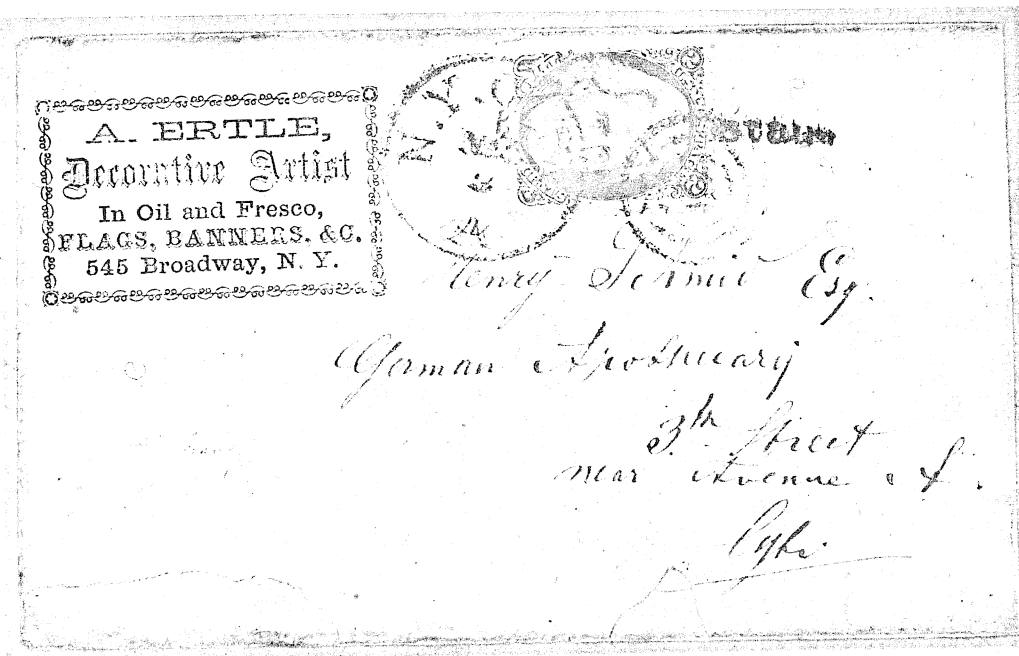 A. ERTLE,
Decorative Artist
In Oil and Fresco,
FLAGS, BANNERS, &C.
545 Broadway, N. Y.
N. Y.
Henry Schmid Esq.
German Apothecary
3th Street
near Avenue A.
City.